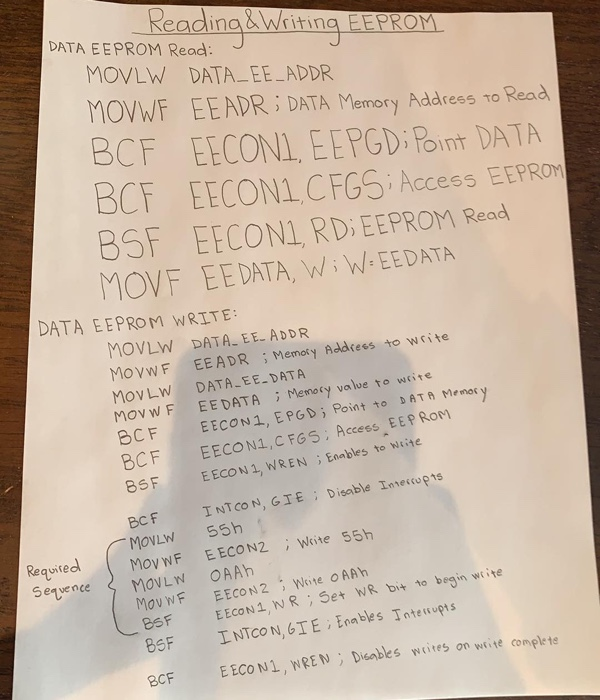 Reading & Writing EEPROM
DATA EEPROM Read:
MOVLW DATA_EE_ADDR
MOVWF EEADR ; DATA Memory Address to Read
BCF EECON1, EEPGD; Point DATA
BCF EECON1, CFGS; Access EEPROM
BSF EECON1, RD; EEPROM Read
MOVF EEDATA, W; W=EEDATA
DATA EEPROM WRITE:
MOVLW DATA_EE_ADDR
MOVWF EEADR ; Memory Address to write
MOVLW DATA_EE_DATA
MOVWF EEDATA ; Memory value to write
BCF EECON1, EPGD; Point to DATA Memory
BCF EECON1, CFGS; Access EEPROM
BSF EECON1, WREN ; Enables to write
BCF INTCON, GIE ; Disable Interrupts
MOVLW 55h
MOVWF EECON2 ; Write 55h
Required Sequence
MOVLW 0AAh
MOVWF EECON2 ; Write 0AAh
BSF EECON1, WR ; Set WR bit to begin write
BSF INTCON, GIE ; Enables Interrupts
BCF EECON1, WREN ; Disables writes on write complete